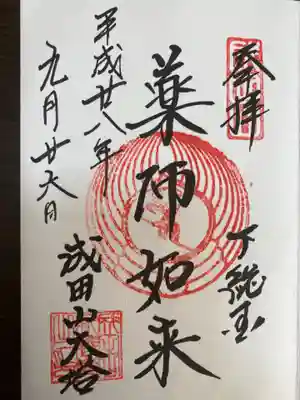 奉拝
下総国
薬師如来
成田山大塔
平成廿八年
九月廿六日